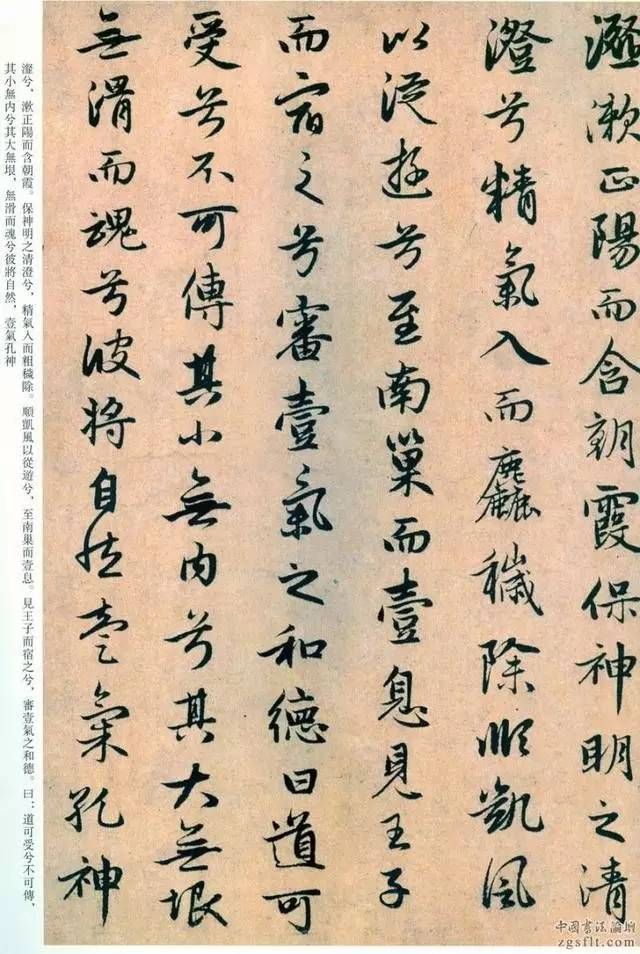 瀣漱正陽而含朝霞保神明之清
澄兮精氣入而麤穢除順凱風
以從遊兮至南巢而壹息見王子
而宿之兮審壹氣之和德曰道可
受兮不可傳其小無内兮其大無垠
無滑而魂兮彼將自然壹氣孔神
瀣兮，漱正陽而含朝霞。保神明之清澄兮，精氣入而粗穢除。順凱風以從遊兮，至南巢而壹息。見王子而宿之兮，審壹氣之和德。曰：道可受兮不可傳，
其小無内兮其大無垠，無滑而魂兮彼將自然，壹氣孔神
中國書法論壇
zgsflt.com